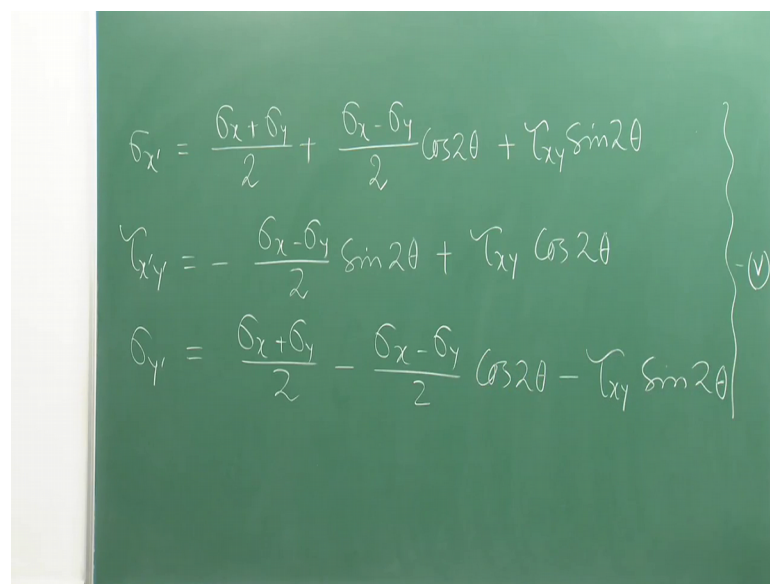 σx' = (σx + σy)/2 + (σx - σy)/2 Cos2θ + τxy Sin2θ
τx'y' = - (σx - σy)/2 Sin2θ + τxy Cos2θ
- (V)
σy' = (σx + σy)/2 - (σx - σy)/2 Cos2θ - τxy Sin2θ